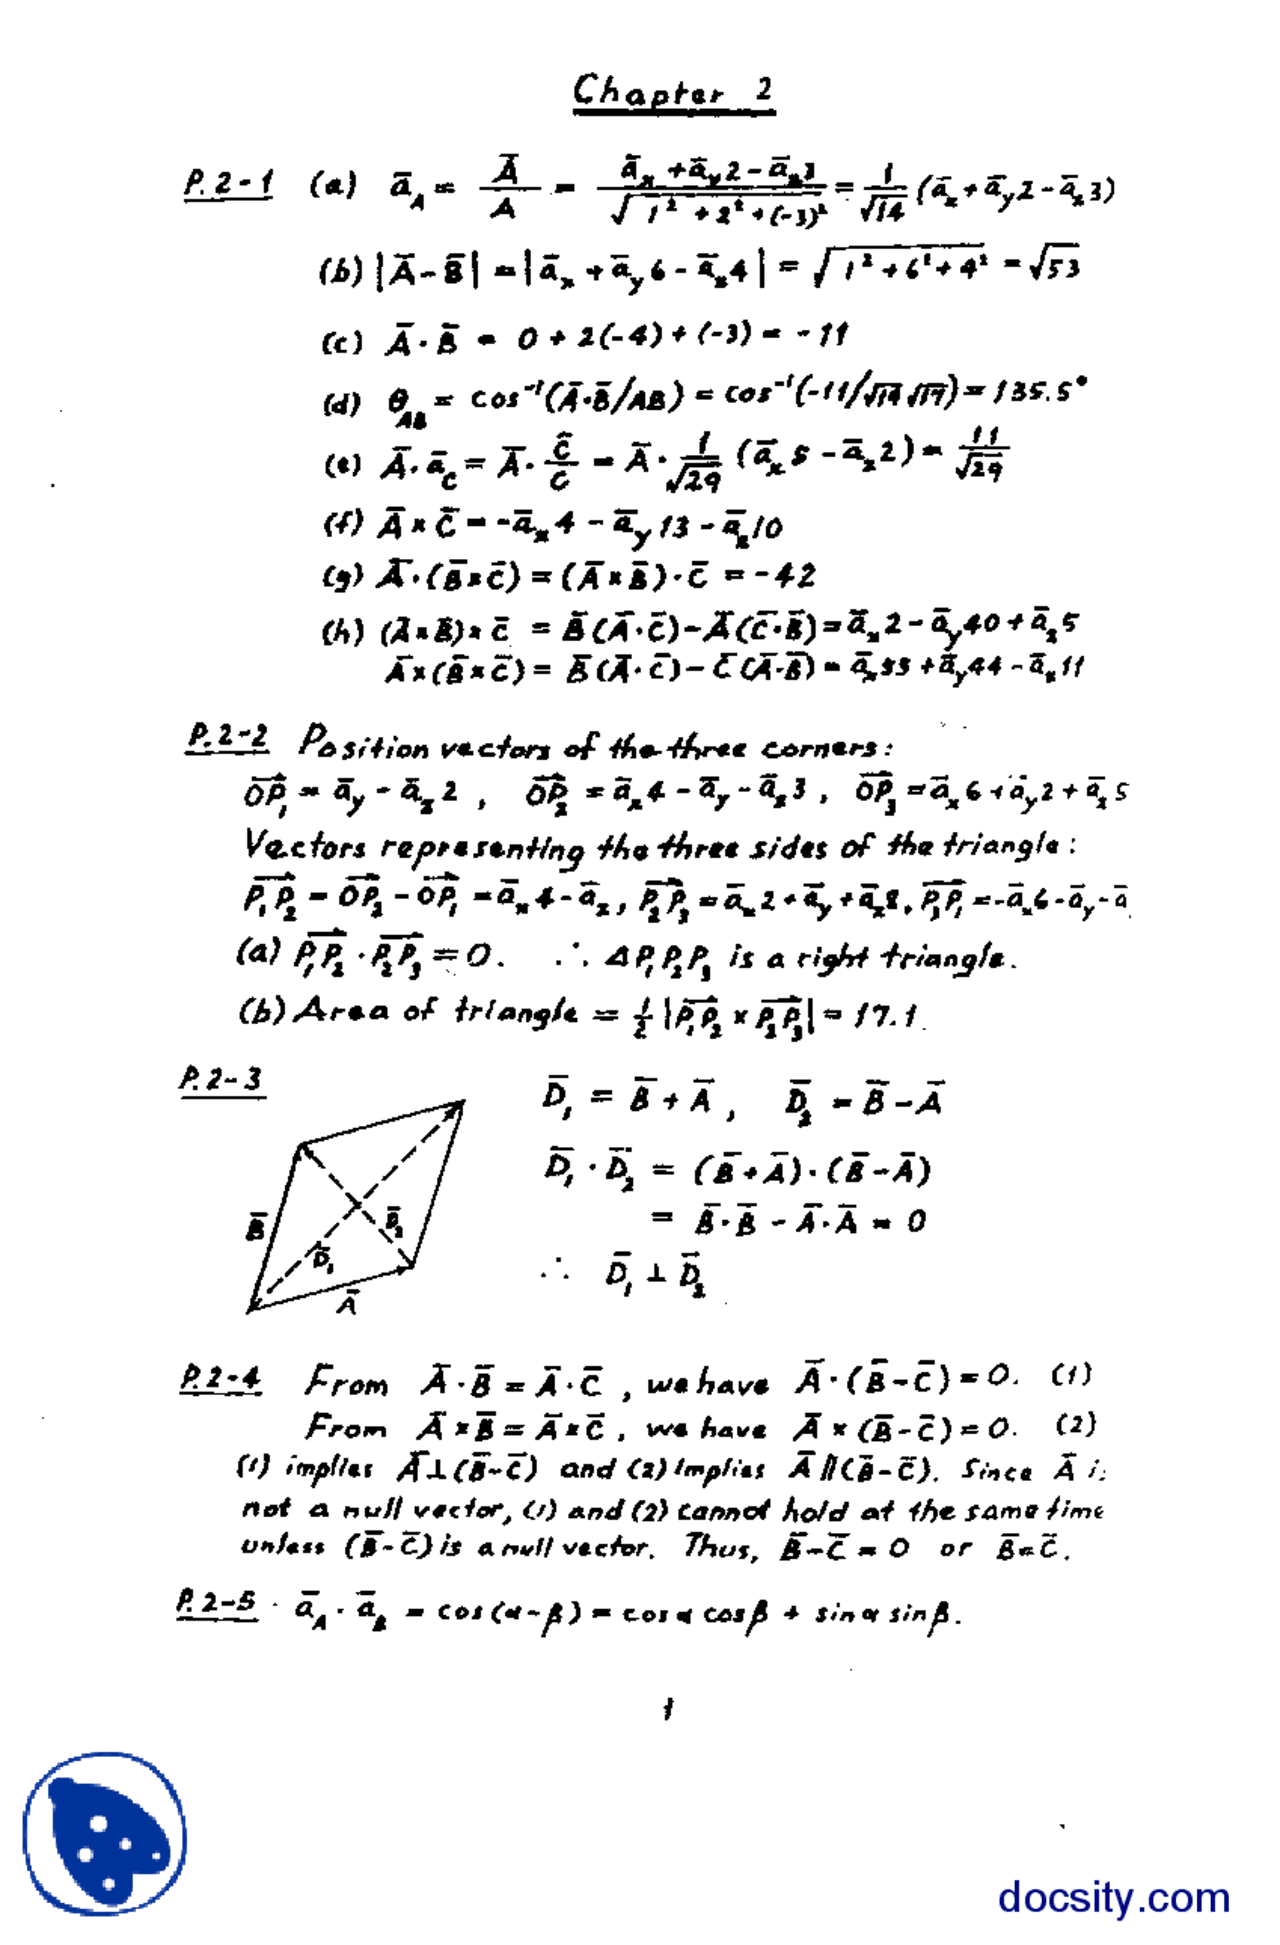 Chapter 2
P.2-1 (a) ā_A = Ā/A = (ā_x + ā_y 2 - ā_z 3)/√(1² + 2² + (-3)²) = 1/√14 (ā_x + ā_y 2 - ā_z 3)
(b) |Ā - B̄| = |ā_x + ā_y 6 - ā_z 4| = √(1² + 6² + 4²) = √53
(c) Ā · B̄ = 0 + 2(-4) + (-3) = -11
(d) θ_AB = cos⁻¹(Ā·B̄/AB) = cos⁻¹(-11/√14 √17) = 135.5°
(e) Ā · ā_C = Ā · C̄/C = Ā · 1/√29 (ā_x 5 - ā_z 2) = 11/√29
(f) Ā × C̄ = -ā_x 4 - ā_y 13 - ā_z 10
(g) Ā · (B̄ × C̄) = (Ā × B̄) · C̄ = -42
(h) (Ā × B̄) × C̄ = B̄(Ā · C̄) - Ā(C̄ · B̄) = ā_x 2 - ā_y 40 + ā_z 5
Ā × (B̄ × C̄) = B̄(Ā · C̄) - C̄(Ā · B̄) = ā_x 55 + ā_y 44 - ā_z 11
P.2-2 Position vectors of the three corners:
OP₁ = ā_y - ā_z 2 , OP₂ = ā_x 4 - ā_y - ā_z 3 , OP₃ = ā_x 6 + ā_y 2 + ā_z 5
Vectors representing the three sides of the triangle:
P₁P₂ = OP₂ - OP₁ = ā_x 4 - ā_z , P₂P₃ = ā_x 2 + ā_y + ā_z 8 , P₃P₁ = -ā_x 6 - ā_y - ā
(a) P₁P₂ · P₂P₃ = 0. ∴ ΔP₁P₂P₃ is a right triangle.
(b) Area of triangle = ½ |P₁P₂ × P₂P₃| = 17.1
P.2-3
D̄₁ = B̄ + Ā , D̄₂ = B̄ - Ā
D̄₁ · D̄₂ = (B̄ + Ā) · (B̄ - Ā)
= B̄ · B̄ - Ā · Ā = 0
∴ D̄₁ ⊥ D̄₂
B̄
D̄₂
D̄₁
Ā
P.2-4 From Ā · B̄ = Ā · C̄ , we have Ā · (B̄ - C̄) = 0. (1)
From Ā × B̄ = Ā × C̄ , we have Ā × (B̄ - C̄) = 0. (2)
(1) implies Ā ⊥ (B̄ - C̄) and (2) implies Ā ∥ (B̄ - C̄). Since Ā
not a null vector, (1) and (2) cannot hold at the same time
unless (B̄ - C̄) is a null vector. Thus, B̄ - C̄ = 0 or B̄ = C̄.
P.2-5 ā_A · ā_B = cos(α - β) = cos α cos β + sin α sin β.
1
docsity.com